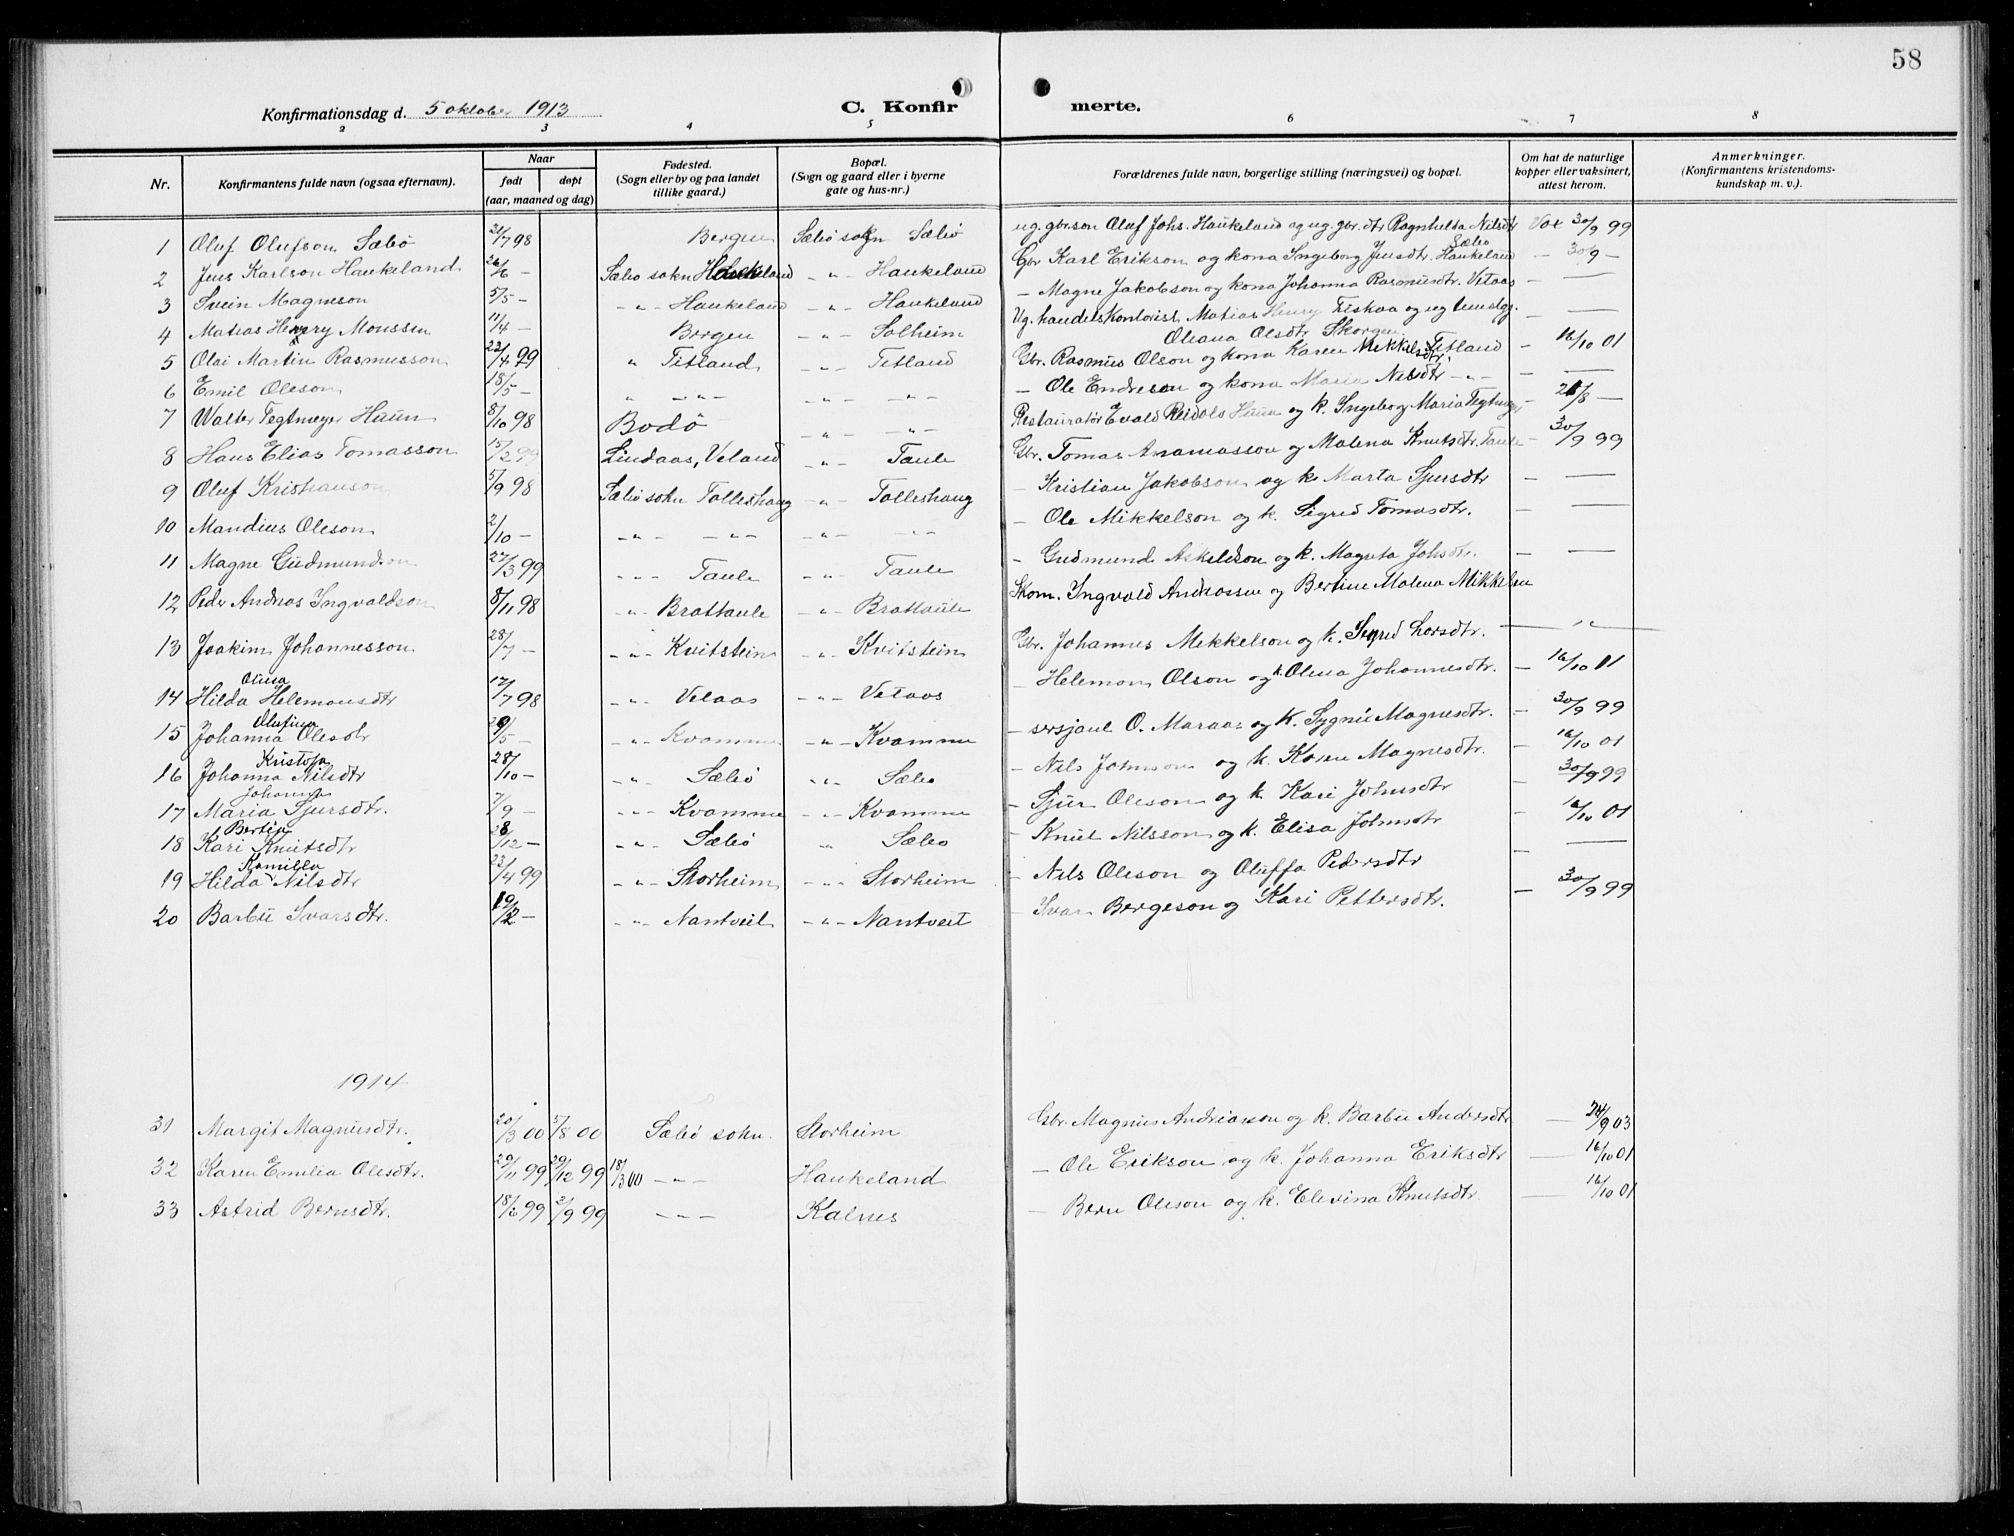 58
Konfirmationsdag d. 5 oktober 1913
C. Konfirmerte.
2 3 4 5 6 7 8
Nr. Konfirmantens fulde navn (ogsaa efternavn). Naar født døpt (aar, maaned og dag) Fødested. (Sogn eller by og paa landet tillike gaard.) Bopæl. (Sogn og gaard eller i byerne gate og hus-nr.) Forældrenes fulde navn, borgerlige stilling (næringsvei) og bopæl. Om hat de naturlige kopper eller vaksinert, attest herom. Anmerkninger. (Konfirmantens kristendomskundskap m. v.).
1 Oluf Olufson Sæbö 21/7 98 Bergen Sæbö sokn Sæbö ug. gbr.son Oluf Johs. Haukeland og ug. gbr. dtr Ragnhilda Nilsdtr Sæbö Vax 30/9 99
2 Jens Karlson Haukeland 26/6 — Sæbö sokn Haukeland -"- Haukeland Gbr Karl Erikson og kona Ingeborg Jensdtr. Haukeland — 30/9 —
3 Svein Magneson 5/5 — -"- Haukeland -"- Haukeland — Magne Jakobson og kona Johanna Rasmusdtr. Vetaas — —
4 Matias Henry Monssen 11/4 — Bergen -"- Solheim Ug. handelskontorist Matias Henry Fiskaa og ug. Oleana Olsdtr Skorgen — —
5 Olai Martin Rasmusson 22/4 99 " Titland -"- Titland Gbr. Rasmus Olson og kona Karen Mikkelsdtr. Titland — 16/10 01
6 Emil Oleson 18/5 — " -"- -"- -"- — Ole Endreson og kona Maria Nilsdtr -"- — —
7 Walter Tegtmeyer Huun 8/10 98 Bodö -"- -"- Restauratör Evald Huun og k. Ingeborg Maria Tegtmeyer — 26/8 —
8 Hans Elias Tomasson 15/2 99 Lindaas, Veland -"- Taule Gbr. Tomas og Malena Knutsdtr. Taule — 30/9 99
9 Oluf Kristianson 5/9 98 Sæbö sokn Tolleshaug -"- Tolleshaug — Kristian Jakobson og k. Marta Sjursdtr — —
10 Mandius Oleson 2/10 — -"- -"- -"- -"- — Ole Mikkelson og k. Sigrid Tomasdtr. — —
11 Magne Gudmundson 27/3 99 -"- Taule -"- Taule — Gudmund Askeldson og k. Magnta Johsdtr. — —
12 Peder Andreas Ingvaldson 8/11 98 -"- Brattaule -"- Brattaule Skom. Ingvald Andreassen og Bertine Malena Mikkelsen
13 Joakim Johannesson 28/7 — -"- Kvitstein -"- Kvitstein Gbr. Johannes Mikkelson og k. Sigrid Larsdtr. — " —
14 Hilda Olina Helemonsdtr 17/7 98 -"- Vetaas -"- Vetaas — Helemon Olson og k. Olina Johannesdtr. — 16/10 01
15 Johanna Olufina Olesdtr 29/5 — -"- Kvamme -"- Kvamme — sersjant O. Maraas og k. Sygni Magnesdtr. — 30/9 99
16 Johanna Kristofa Nilsdtr 28/10 — -"- Sæbö -"- Sæbö — Nils Johnson og k. Karen Magnesdtr. — 16/10 01
17 Maria Johanna Sjursdtr. 7/9 — -"- Kvamme -"- Kvamme — Sjur Oleson og k. Kari Johnsdtr — 30/9 99
18 Kari Bertin Knutsdtr 28/12 — -"- Sæbö " Sæbö — Knut Nilsson og k. Elisa Johnsdtr — 16/10 01
19 Hilda Kamilla Nilsdtr 23/4 99 -"- Storheim -"- Storheim — Nils Oleson og Oluffa Pedersdtr — —
20 Barbu Ivarsdtr. 19/2 — -"- Nantveit -"- Nantveit — Ivar Bergeson og Kari Pettersdtr. — 30/9 99
1914
31 Margit Magnusdtr. 20/3 00 5/8 00 Sæbö sokn. Storheim Gbr. Magnus Andriasson og k. Barbu Andersdtr — 24/9 03
32 Karen Emilia Olesdtr. 20/11 99 29/12 99 18/3 00 -"- Haukeland — Ole Erikson og k. Johanna Eriksdtr — 16/10 01
33 Astrid Bernsdtr. 18/6 99 3/9 99 — — Kalnes — Bern Oleson og k. Elevina Knutsdtr. — 16/10 01